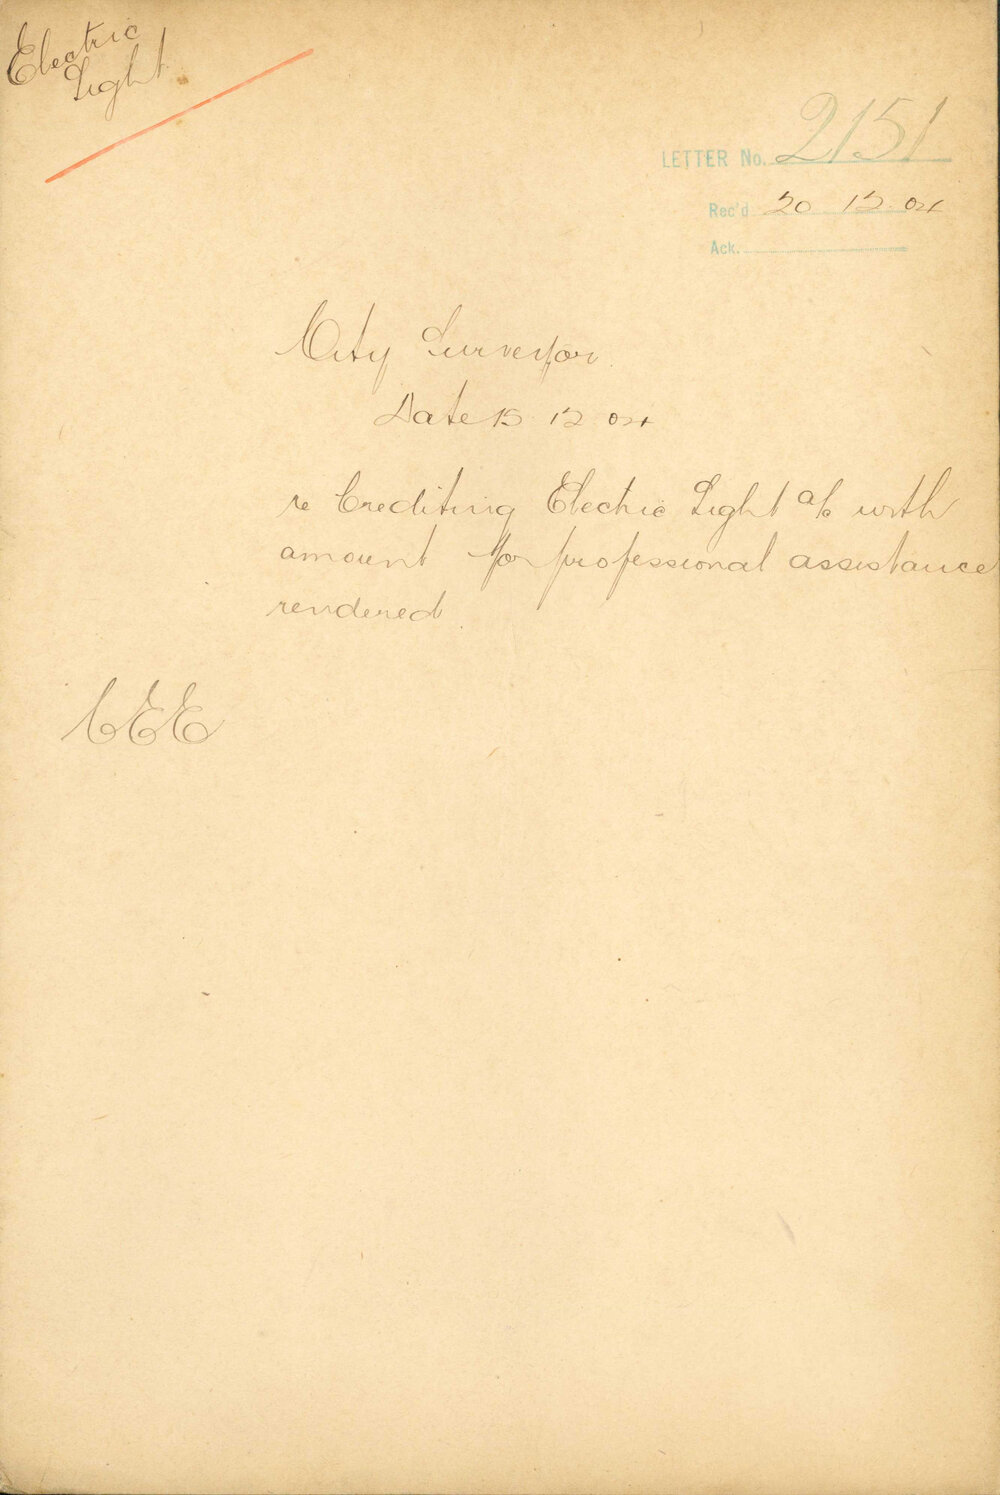 Electric
Light
LETTER No. 2151
Rec'd 20 12 04
Ack.
City Surveyor
Date 15 12 04
re Crediting Electric Light a/c with
amount for professional assistance
rendered.
CEE